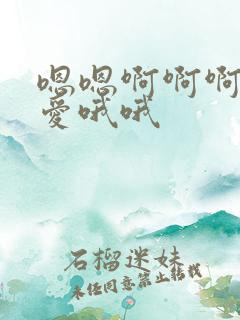 嗯嗯啊啊啊
爱哦哦
石榴迷妹
未经同意禁止转载